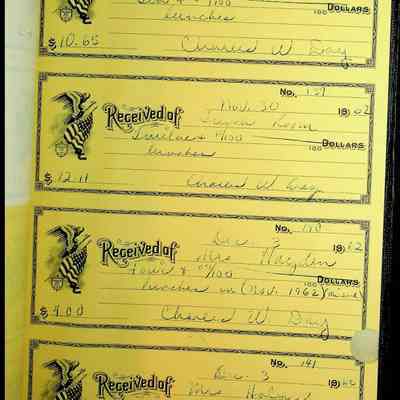 Ten & 65/100 DOLLARS
lunches 100
$ 10.65 Charles W. Day
No. 139
Nov. 30 19 62
Received of
Twelve & 11/100 DOLLARS
lunches 100
$ 12.11 Charles W. Day
No. 140
Dec. 3 19 62
Received of Mrs Hayden
Four & 00/100 DOLLARS
lunches in (Nov. 1962) 100
$ 4.00 Charles W. Day
No. 141
Dec. 3 19 62
Received of Mrs